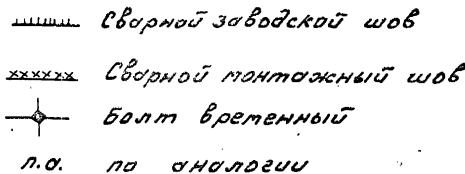 Сварной заводской шов
Сварной монтажный шов
Болт временный
п.а. по аналогии